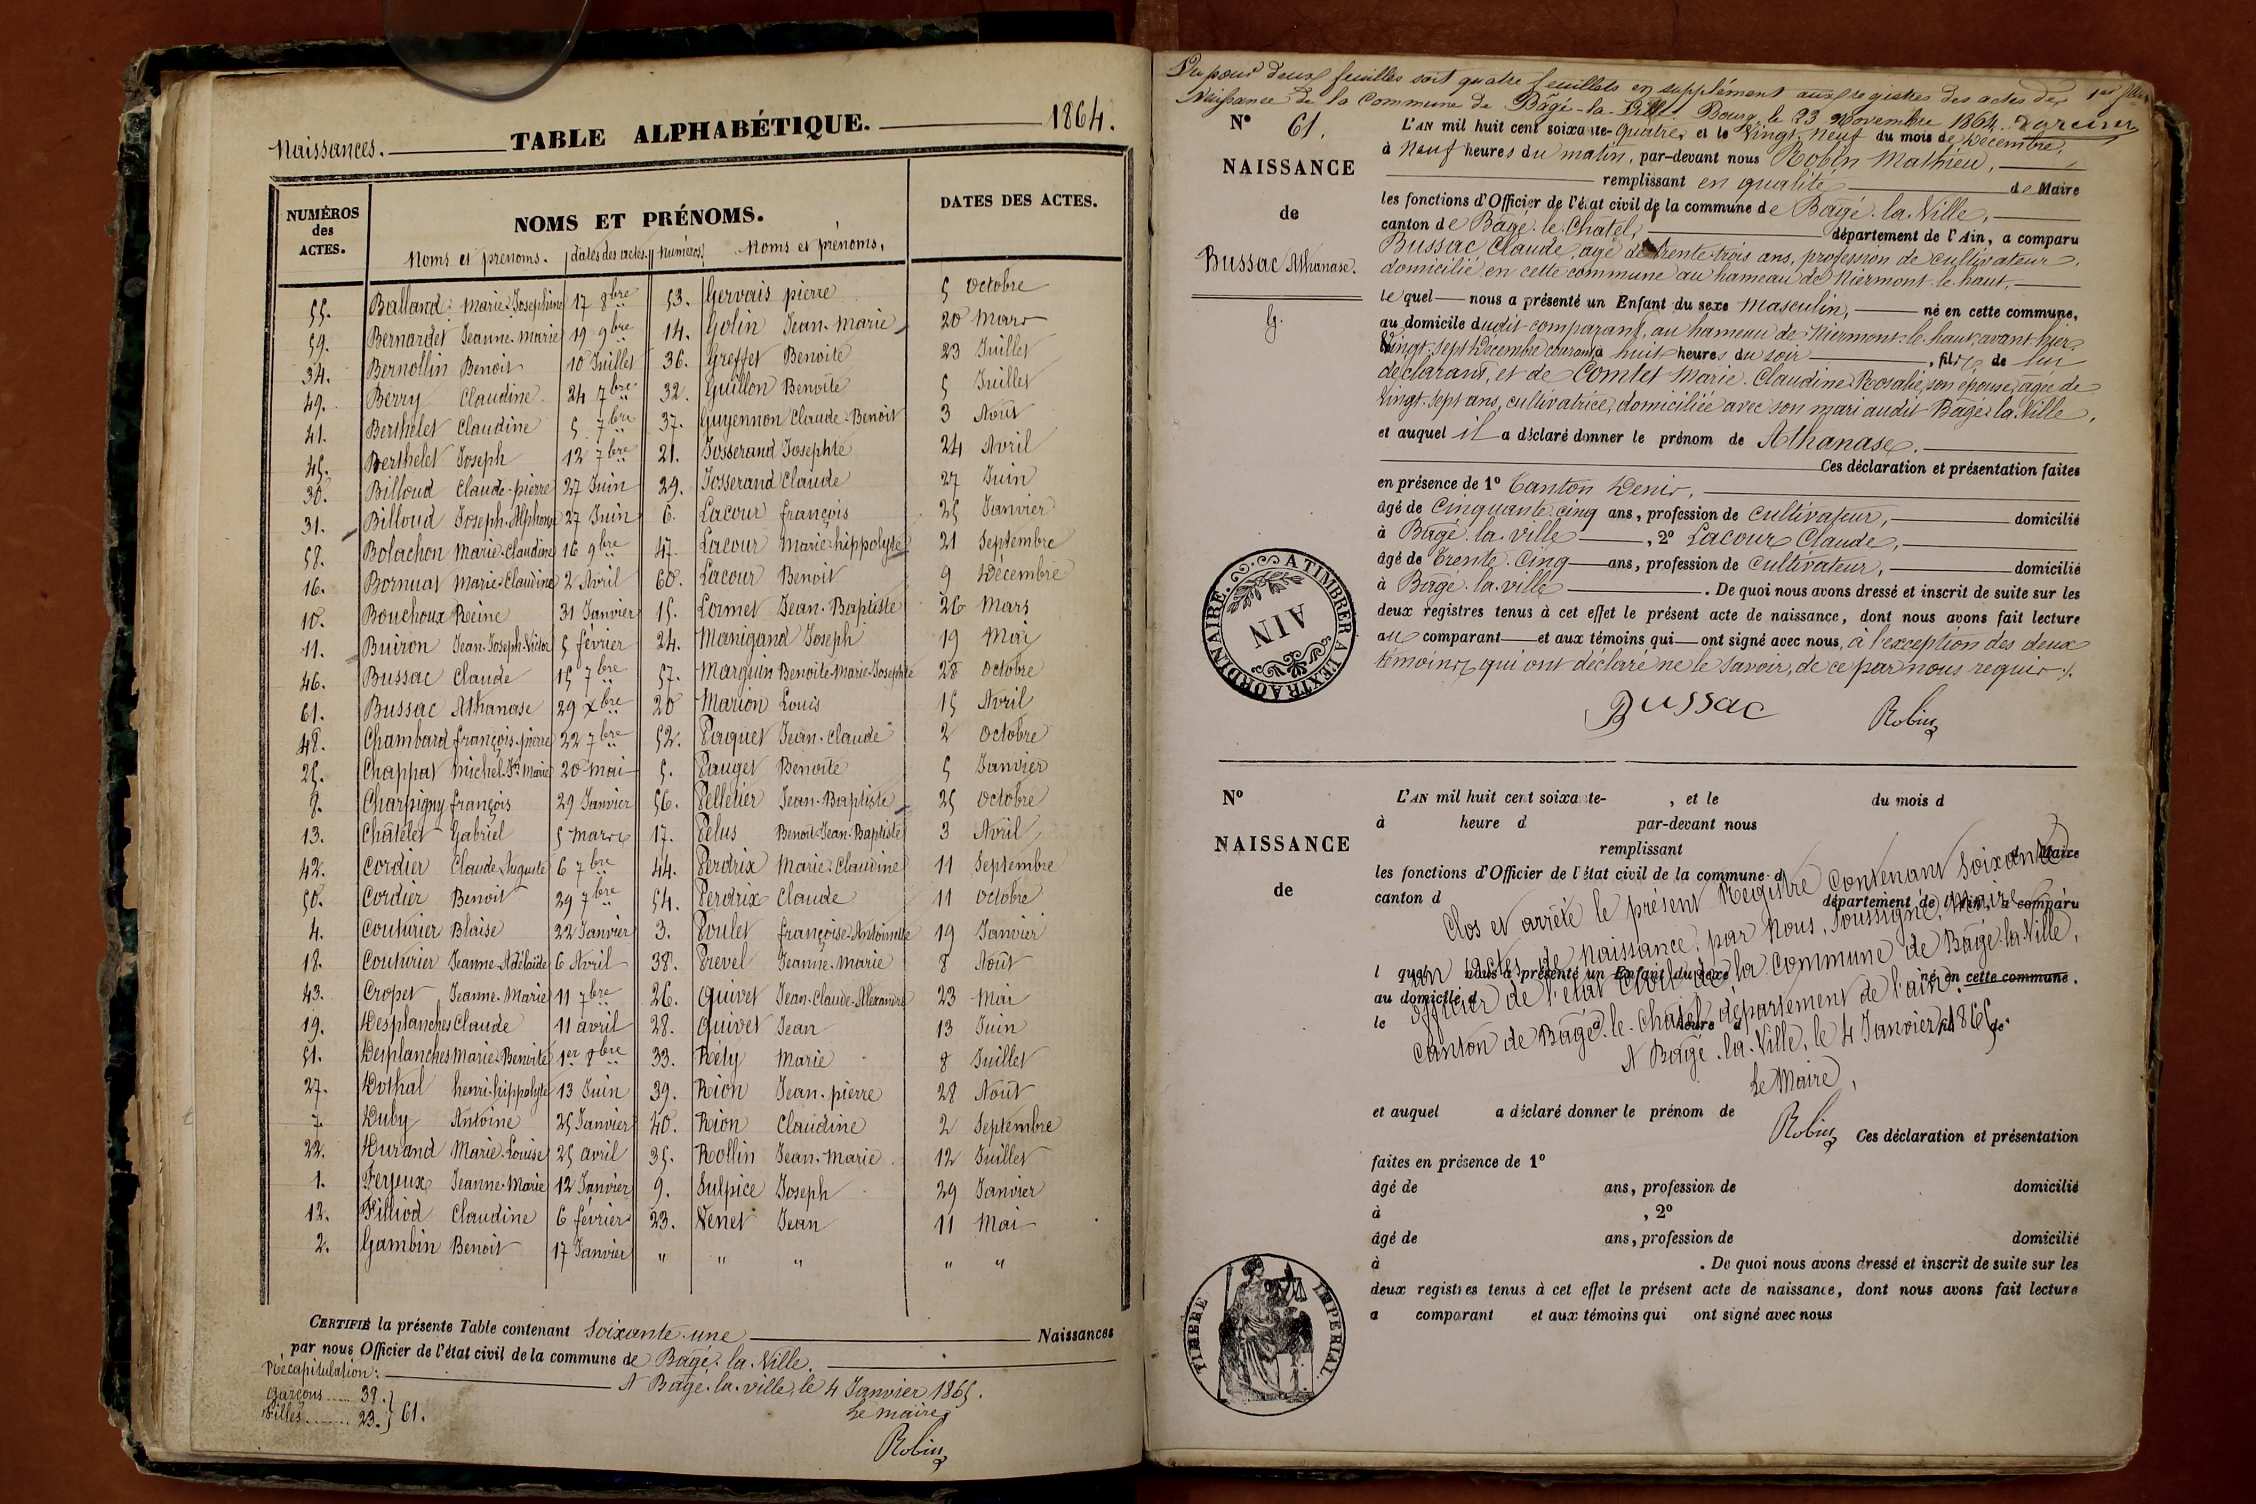 Naissances. TABLE ALPHABÉTIQUE. 1864.
NUMÉROS des ACTES. NOMS ET PRÉNOMS. DATES DES ACTES.
Noms et prénoms. dates des actes. Numéros. Noms et prénoms.
55. Balland Marie-Joséphine 17 8bre 53. Gervais pierre 5 Octobre
59. Bernardet Jeanne-Marie 19 9bre 14. Golin Jean-Marie 20 Mars
34. Bernollin Benoit 10 Juillet 36. Greffet Benoite 23 Juillet
49. Berry Claudine 24 7bre 32. Guillon Benoite 5 Juillet
41. Berthelet Claudine 5 7bre 37. Guyennon Claude-Benoit 3 Août
45. Berthelet Joseph 12 7bre 21. Josserand Josephte 24 Avril
30. Billoud Claude-pierre 27 Juin 29. Josserand Claude 27 Juin
31. Billoud Joseph-Alphonse 27 Juin 6. Lacour françois 25 Janvier
58. Bolachon Marie-Claudine 16 9bre 47. Lacour Marie-hippolyte 21 Septembre
16. Bornuat Marie-Claudine 2 Avril 60. Lacour Benoit 9 Décembre
10. Bouchoux Reine 31 Janvier 15. Lormet Jean-Baptiste 26 Mars
11. Buiron Jean-Joseph-Victor 5 février 24. Manigand Joseph 19 Mai
46. Bussac Claude 15 7bre 57. Marguin Benoite-Marie-Josephte 28 Octobre
61. Bussac Athanase 29 Xbre 20 Marion Louis 15 Avril
48. Chambard françois-pierre 22 7bre 52. Paquet Jean-Claude 2 Octobre
25. Chappat Michel-Jh Marie 20 mai 5. Pauget Benoite 5 Janvier
8. Charpigny françois 29 Janvier 56. Pelletier Jean-Baptiste 25 Octobre
13. Châtelet Gabriel 5 mars 17. Pelus Benoit-Jean-Baptiste 3 Avril
42. Cordier Claude-Auguste 6 7bre 44. Perdrix Marie-Claudine 11 Septembre
50. Cordier Benoit 29 7bre 54. Perdrix Claude 11 Octobre
4. Couturier Blaise 22 Janvier 3. Poulet françoise-Antoinette 19 Janvier
18. Couturier Jeanne-Adélaïde 6 Avril 38. Prevel Jeanne-Marie 8 Août
43. Cropet Jeanne-Marie 11 7bre 26. Quivet Jean-Claude-Alexandre 23 Mai
19. Desplanches Claude 11 avril 28. Quivet Jean 13 Juin
51. Desplanches Marie-Benoite 1er 8bre 33. Réty Marie 8 Juillet
27. Dothal henri-hippolyte 13 Juin 39. Rion Jean-pierre 28 Août
7. Duby Antoine 25 Janvier 40. Rion Claudine 2 Septembre
22. Durand Marie-Louise 25 avril 35. Rollin Jean-Marie 12 Juillet
1. Ferjeux Jeanne-Marie 12 Janvier 9. Sulpice Joseph 29 Janvier
12. Filliod Claudine 6 février 23. Venet Jean 11 Mai
2. Gambin Benoit 17 Janvier " " " " "
CERTIFIÉ la présente Table contenant Soixante-une Naissances
par nous Officier de l'état civil de la commune de Bâgé-la-Ville.
A Bâgé-la-ville, le 4 Janvier 1865.
Récapitulation:
Garçons 38.
Filles 23. } 61.
Le maire,
Robin
deux feuilles soit quatre feuillets en supplément aux registres des actes de
Naissance de la Commune de Bâgé-la-Ville. Bourg, le 23 Novembre 1864.
N° 61.
NAISSANCE
de
Bussac Athanase.
L'AN mil huit cent soixante-quatre, et le Vingt-neuf du mois de Décembre,
à Neuf heures du matin, par-devant nous Robin Mathieu,
remplissant en qualité de Maire
les fonctions d'Officier de l'état civil de la commune de Bâgé-la-Ville,
canton de Bâgé-le-Châtel, département de l'Ain, a comparu
Bussac Claude, âgé de trente trois ans, profession de cultivateur,
domicilié en cette commune au hameau de Niermont-le-haut,
lequel nous a présenté un Enfant du sexe Masculin, né en cette commune,
au domicile dudit comparant, au hameau de Niermont-le-haut, avant hier
Vingt-sept Décembre courant à huit heures du soir, fils de lui
déclarant, et de Comtet Marie-Claudine-Rosalie, son épouse, âgée de
Vingt-sept ans, cultivatrice, domiciliée avec son mari audit Bâgé-la-Ville,
et auquel il a déclaré donner le prénom de Athanase.
Ces déclaration et présentation faites
en présence de 1° Canton Denis,
âgé de Cinquante-cinq ans, profession de cultivateur, domicilié
à Bâgé-la-ville, 2° Lacour Claude,
âgé de Trente-Cinq ans, profession de Cultivateur, domicilié
à Bâgé-la-ville. De quoi nous avons dressé et inscrit de suite sur les
deux registres tenus à cet effet le présent acte de naissance, dont nous avons fait lecture
au comparant et aux témoins qui ont signé avec nous, à l'exception des deux
témoins, qui ont déclaré ne le savoir, de ce par nous requis.
A TIMBRER A L'EXTRAORDINAIRE.
AIN
Bussac Robin
N°
NAISSANCE
de
L'AN mil huit cent soixante- , et le du mois d
à heure d par-devant nous
remplissant d Maire
les fonctions d'Officier de l'état civil de la commune d
canton d département de l'Ain, a comparu
Clos et arrêté le présent Registre contenant Soixante
un actes de naissance, par Nous, Soussigné, Maire
l quel nous a présenté un Enfant du sexe né en cette commune.
officier de l'état civil de la commune de Bâgé-la-Ville,
au domicile d
le heure d fil de
canton de Bâgé-le-Châtel, département de l'ain.
A Bâgé-la-Ville, le 4 Janvier 1865.
Le Maire,
et auquel a déclaré donner le prénom de
Robin
Ces déclaration et présentation
faites en présence de 1°
âgé de ans, profession de domicilié
à , 2°
âgé de ans, profession de domicilié
à . De quoi nous avons dressé et inscrit de suite sur les
deux registres tenus à cet effet le présent acte de naissance, dont nous avons fait lecture
a comparant et aux témoins qui ont signé avec nous
TIMBRE IMPERIAL.